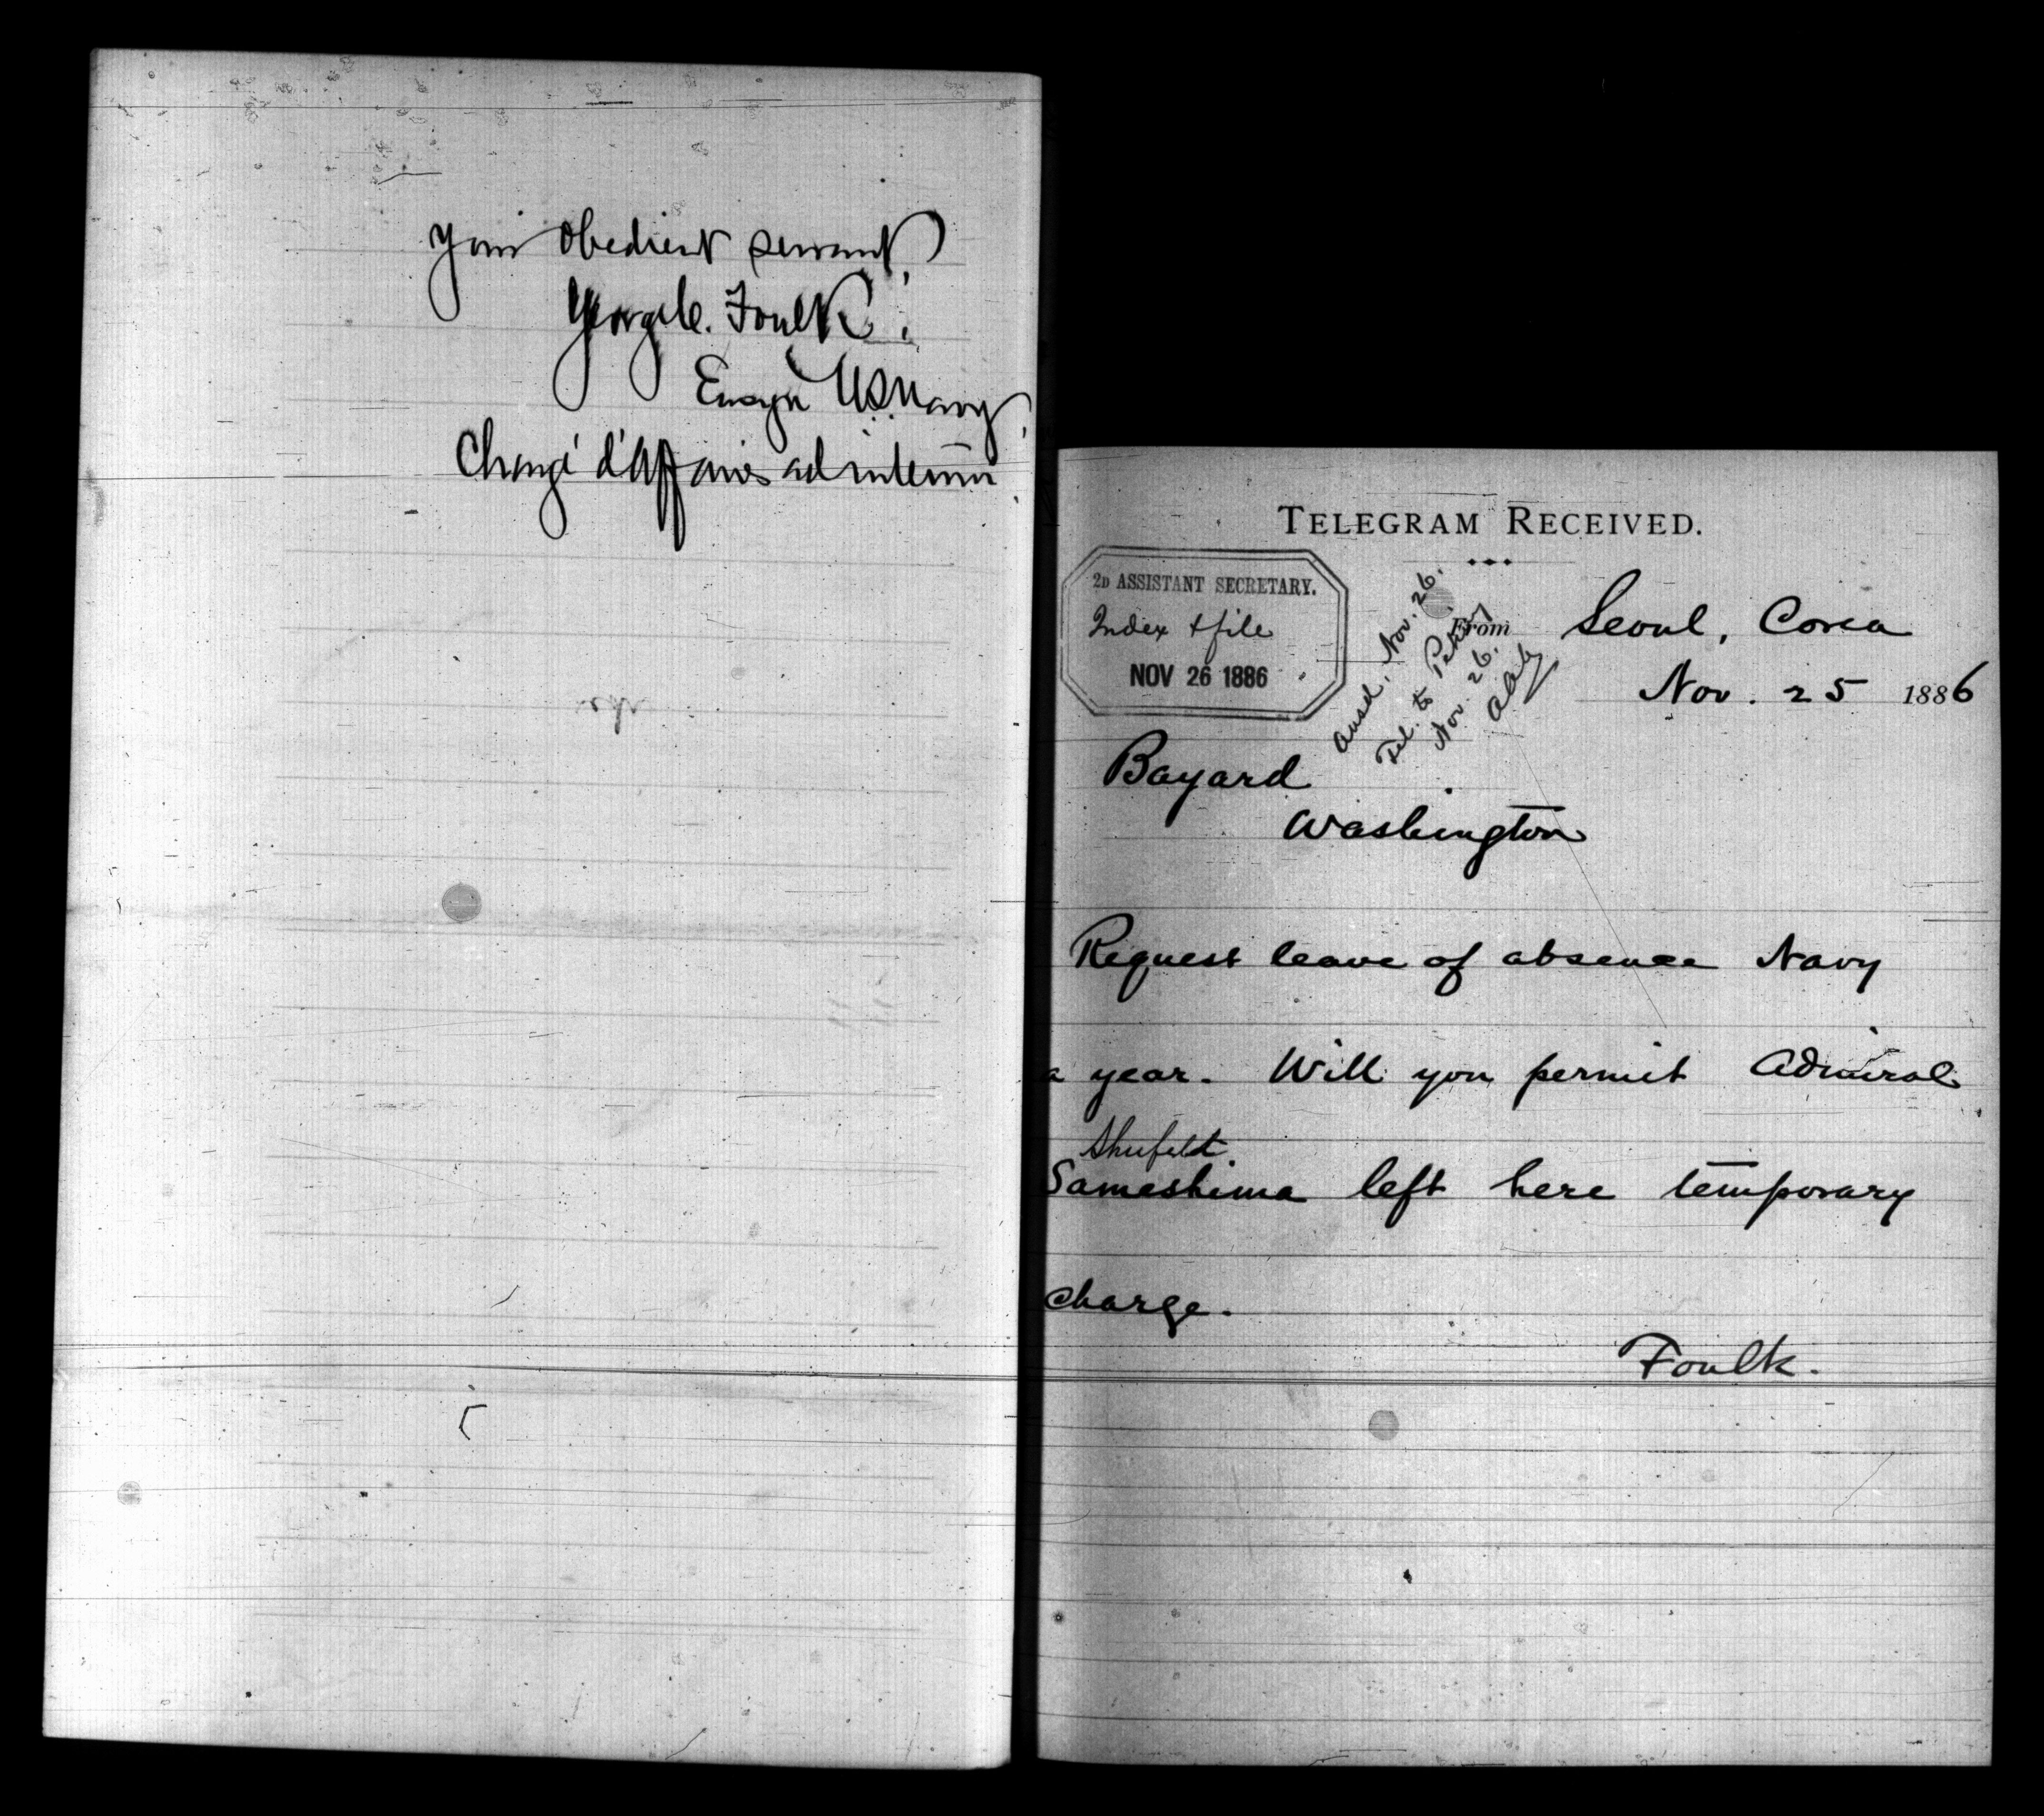 Your obedient servant,
George C. Foulk.
Ensign U.S. Navy,
Chargé d'Affaires ad interim
TELEGRAM RECEIVED.
2D ASSISTANT SECRETARY.
Index & file
NOV 26 1886
Ansd, Nov. 26.
Tel. to Peking
Nov. 26.
From Seoul, Corea
Nov. 25 1886
Bayard
Washington
Request leave of absence Navy
a year. Will you permit Admiral
Shufeldt
Sameshima left here temporary
charge.
Foulk.